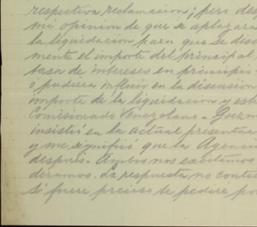 respectiva reclamacion; pero desp
mi opinion de que se aplazara
la liquidacion para que se disc
mente el importe del principal
tasa de intereses en principio
o pudiera influir en la discusion
importe de la liquidacion y est
Comisionado Venezolano - Guzm
insistió en la actual presenta
y me significó que la Agencia
despues. Ambos nos
deramos. La respuesta no contes
si fuere preciso se pedira po